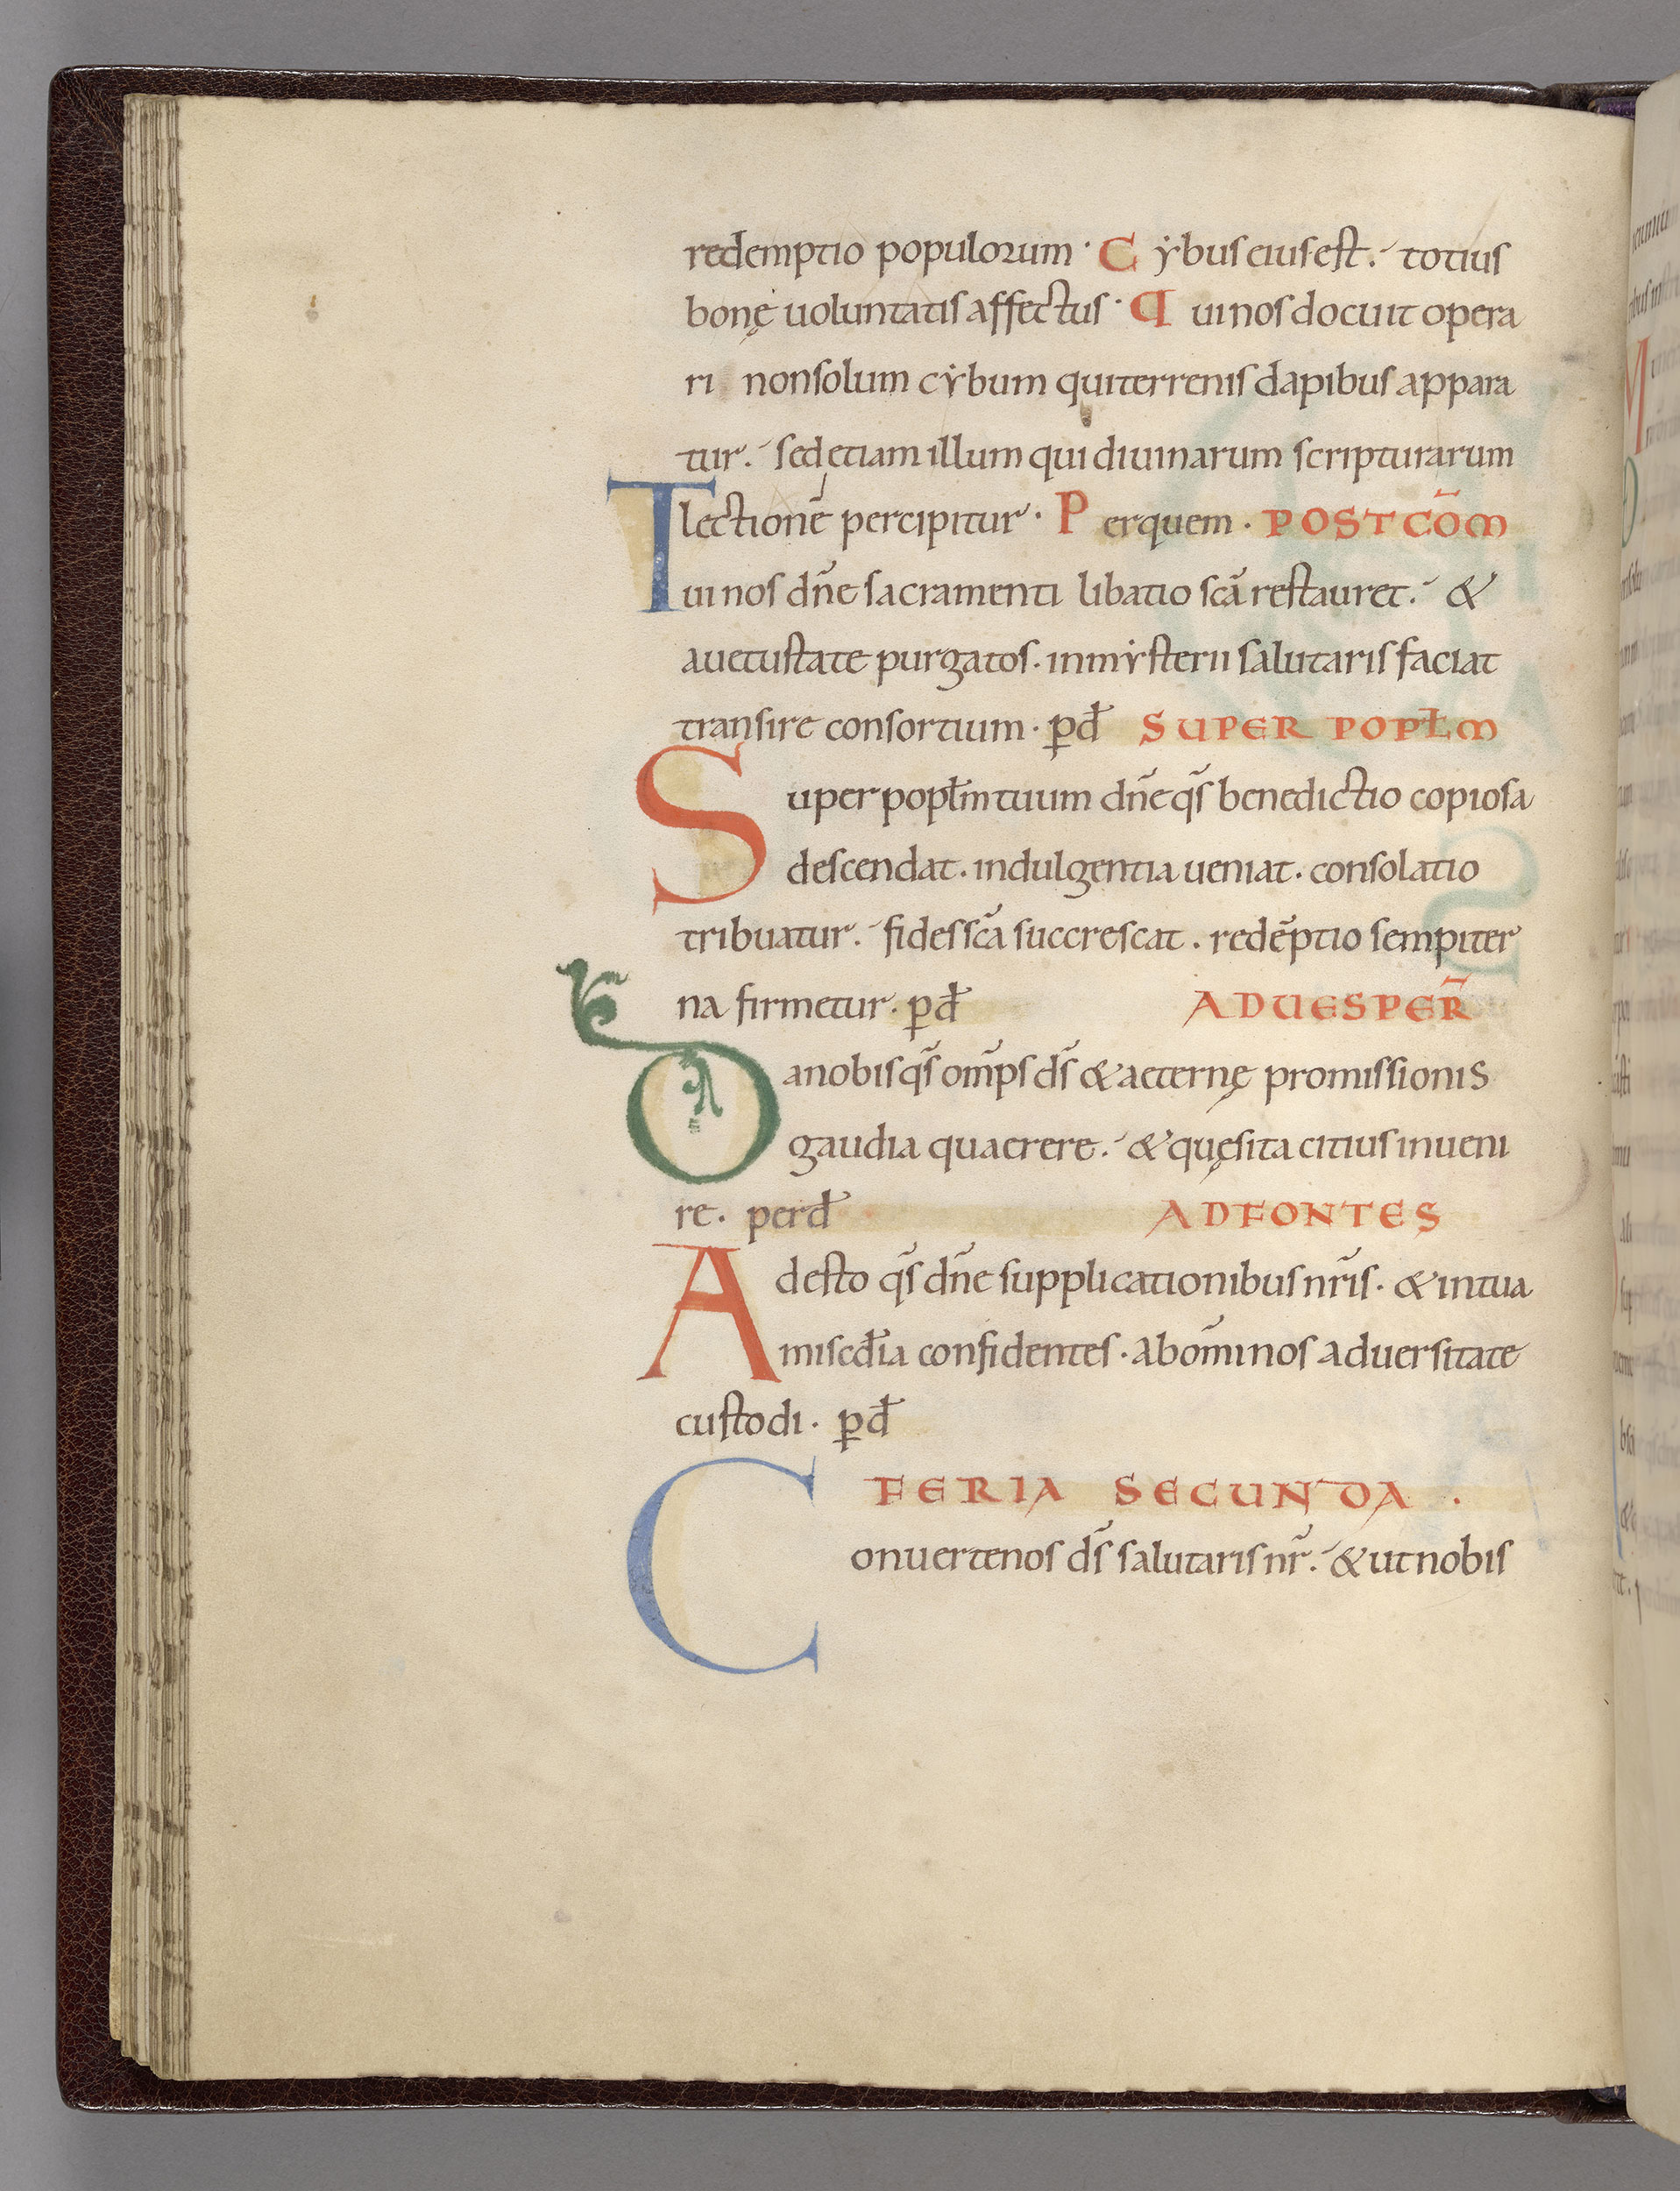 redemptio populorum · Cẏbus eius est. totius
bonę uoluntatis affectus · Qui nos docuit opera
ri non solum cẏbum qui terrenis dapibus appara
tur. sed etiam illum qui diuinarum scripturarum
lectionē percipitur · Per quem · POST CŌM
Tui nos dn̄e sacramenti libatio scā restauret. &
a uetustate purgatos. in mẏsterii salutaris faciat
transire consortium · ꝑ đ SUPER POPŁM
Super popłm tuum dn̄e qs̄ benedictio copiosa
descendat. indulgentia ueniat. consolatio
tribuatur. fides scā succrescat. redēptio sempiter
na firmetur. ꝑ đ AD UESPER̄
Da nobis qs̄ om̄ps ds̄ & aeternę promissionis
gaudia quaerere. & quęsita citius inueni
re. per đ AD FONTES
Adesto qs̄ dn̄e supplicationibus nr̄is. & in tua
misedđia confidentes. ab om̄i nos aduersitate
custodi. ꝑ đ
FERIA SECUNDA .
Conuerte nos ds̄ salutaris nr̄. & ut nobis